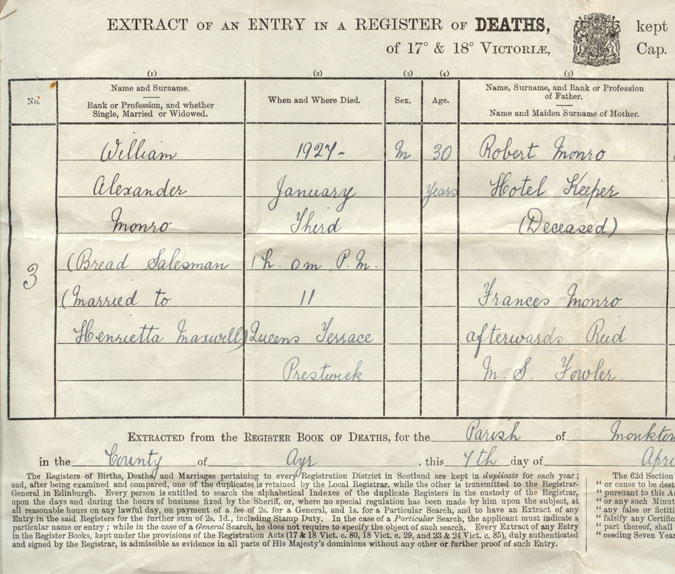 EXTRACT OF AN ENTRY IN A REGISTER OF DEATHS, kept
of 17° & 18° VICTORIÆ, Cap.
(1) (2) (3) (4) (5)
No. Name and Surname. When and Where Died. Sex. Age. Name, Surname, and Rank or Profession of Father.
Rank or Profession, and whether Single, Married or Widowed. Name and Maiden Surname of Mother.
William 1927- M 30 Robert Monro
Alexander January Years Hotel Keeper
Monro Third (Deceased)
3 (Bread Salesman 1h. 0m P.M.
(Married to 11 Frances Monro
Henrietta Maxwell) Queens Terrace afterwards Reid
Prestwick M. S. Fowler
EXTRACTED from the REGISTER BOOK OF DEATHS, for the Parish of Monkton
in the County of Ayr, this 7th day of Apri
The Registers of Births, Deaths, and Marriages pertaining to every Registration District in Scotland are kept in duplicate for each year;
and, after being examined and compared, one of the duplicates is retained by the Local Registrar, while the other is transmitted to the Registrar-
General in Edinburgh. Every person is entitled to search the alphabetical Indexes of the duplicate Registers in the custody of the Registrar,
upon the days and during the hours of business fixed by the Sheriff, or, where no special regulation has been made by him upon the subject, at
all reasonable hours on any lawful day, on payment of a fee of 2s. for a General, and 1s. for a Particular Search, and to have an Extract of any
Entry in the said Registers for the further sum of 2s. 1d., including Stamp Duty. In the case of a Particular Search, the applicant must indicate a
particular name or entry; while in the case of a General Search, he does not require to specify the object of such search. Every Extract of any Entry
in the Register Books, kept under the provisions of the Registration Acts (17 & 18 Vict. c. 80, 18 Vict. c. 29, and 23 & 24 Vict. c. 85), duly authenticated
and signed by the Registrar, is admissible as evidence in all parts of His Majesty's dominions without any other or further proof of such Entry.
The 62d Section
" or cause to be
" pursuant to this
" or any such
" any false or
" falsify any
" part thereof, shall
ceeding Seven